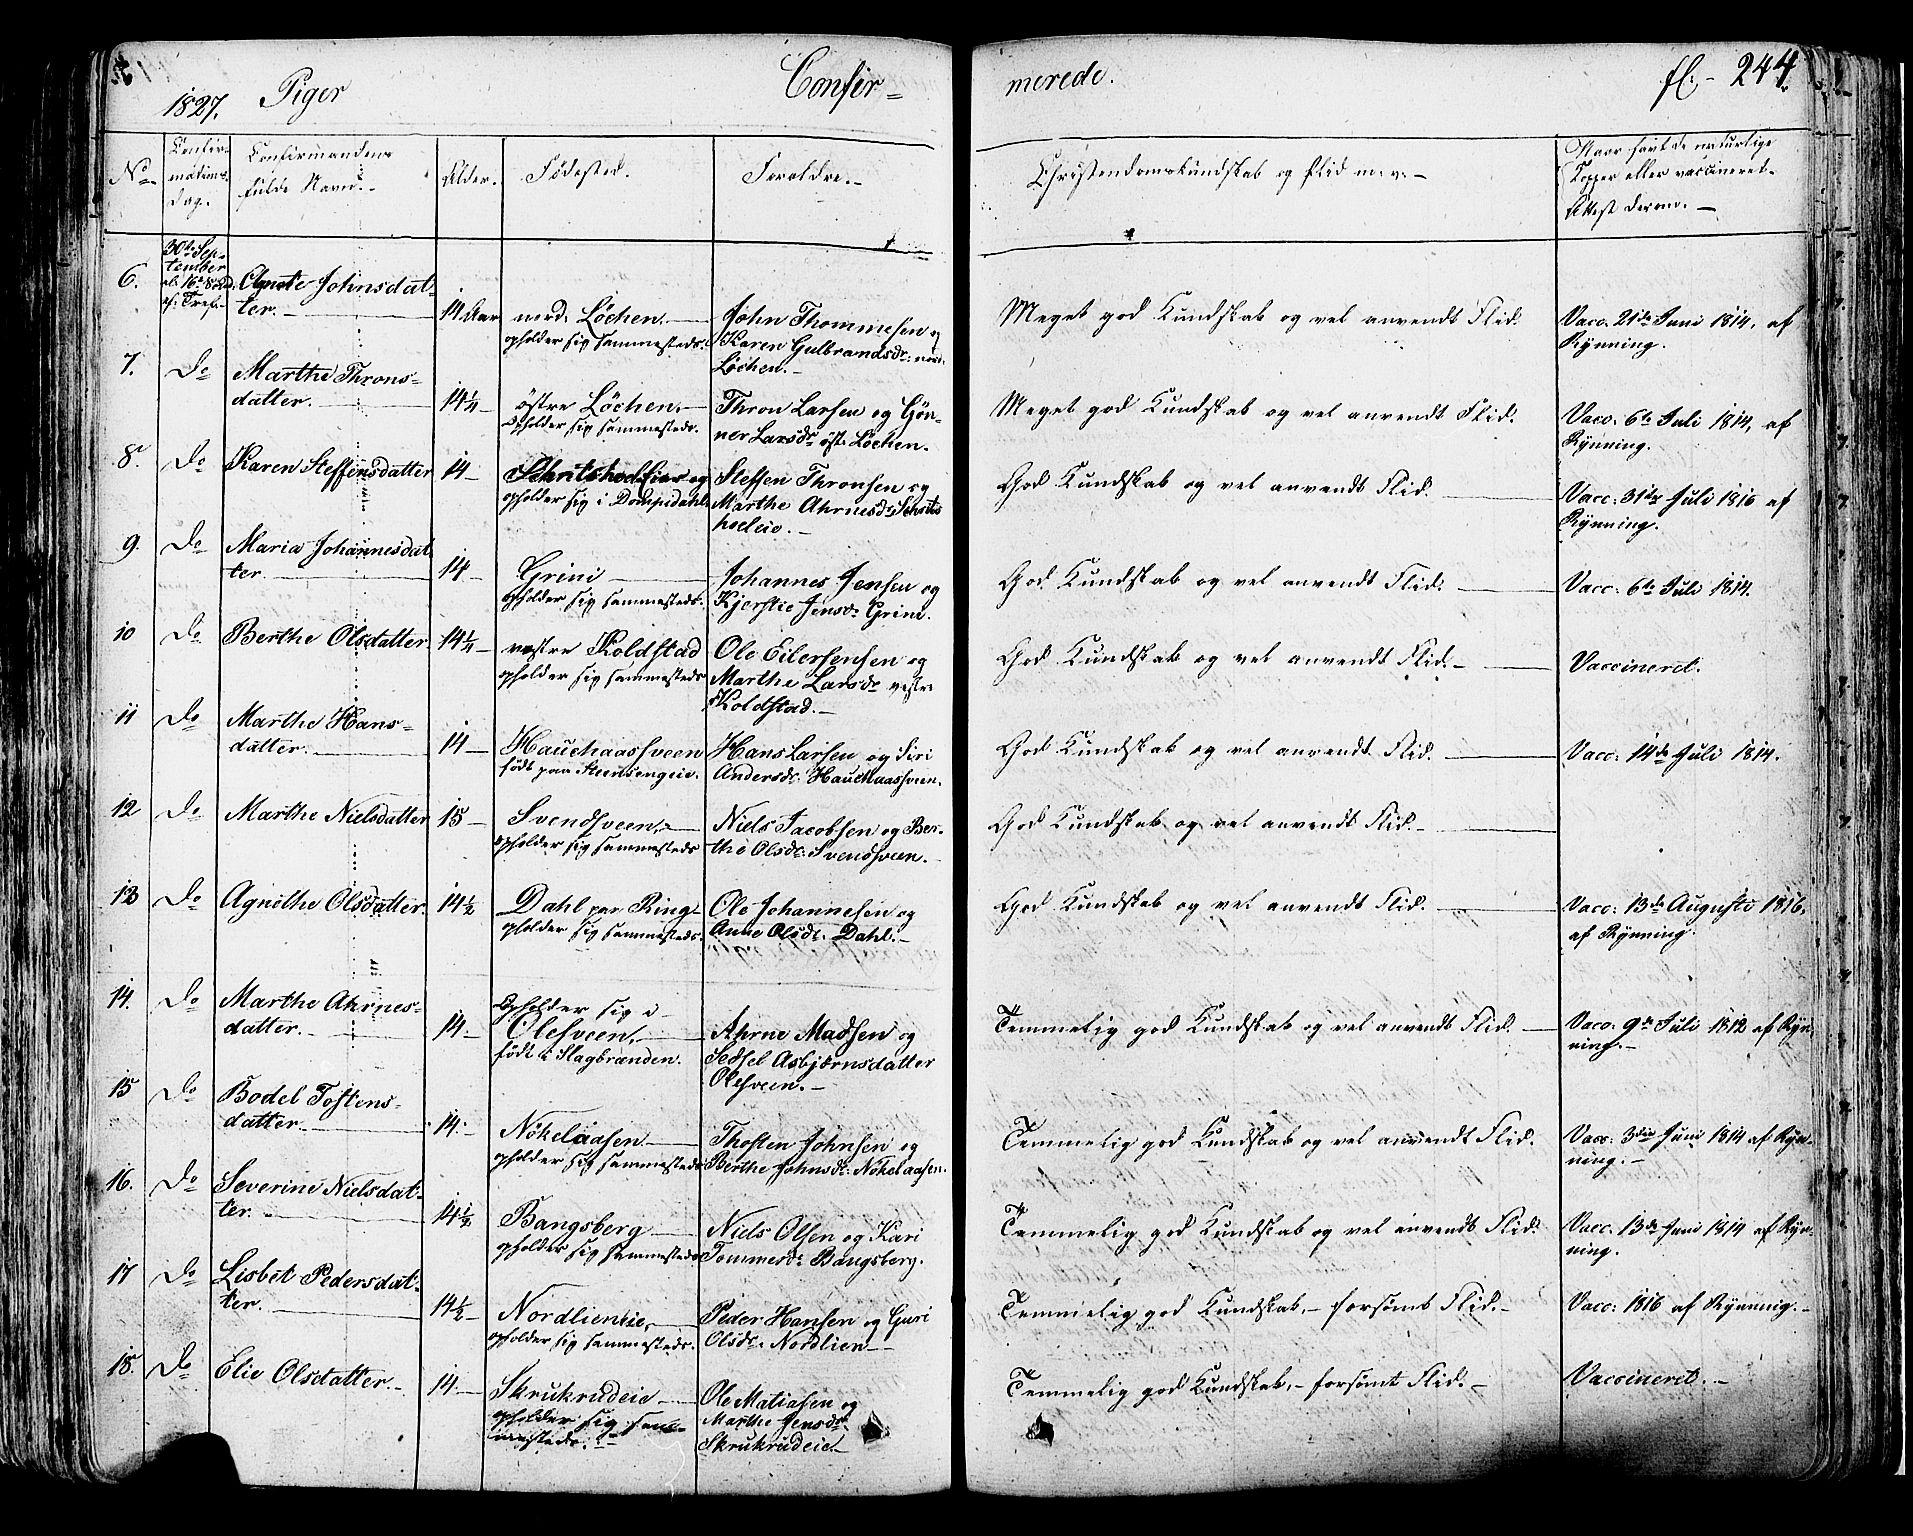 1827. Piger Confir= merede. fl. - 244.
No. Confir- mations Dag. Confirmandens fulde Navn. - Alder. Fødested. Foreldre. - Christendomskundskab og Flid m: v: - Naar havt de naturlige Kopper eller vaccineret. Attest derom. -
6. 30te September Johnsdat-
ter. - 14 Aar nord: Löchen. - John Thommesen og Meget god Kundskab og vel anvendt Flid. Vacc. 21de Juni 1814, af
opholder sig sammesteds. Karen Gulbrandsdr: nord: Rÿnning.
Löchen. -
7. Do Marthe Throns-
datter. 14¼ - östre Löchen. - Thron Larsen og Gön- Meget god Kundskab og vel anvendt Flid. Vacc: 6te Juli 1814, af
opholder sig sammesteds. ner Larsdr öst: Löchen. Rÿnning.
8. Do Karen Steffensdatter 14 - og Steffen Thronsen og God Kundskab og vel anvendt Flid. Vacc: 31te Juli 1816 af
opholder sig i Marthe Ahrnesdr: Rÿnning.
9. Do Maria Johannesdat-
ter. 14 - Grini - Johannes Jensen og God Kundskab og vel anvendt Flid. Vacc: 6te Juli 1814.
opholder sig sammesteds. Kjerstie Jensdr: Grini.
10 Do Berthe Olsdatter. 14¼ - vestre Koldstad Ole Eilersensen og God Kundskab og vel anvendt Flid. - Vaccineret.
opholder sig sammesteds Marthe Larsdr vestre
Koldstad. -
11 Do Marthe Hans-
datter. 14 - Hauchaassveen Hans Larsen og Siri God Kundskab og vel anvendt Flid. Vacc: 14de Juli 1814.
födt paa Steensengeie. Andersdr: Hauchaassveen.
12 Do Marthe Nielsdatter 15 - Svendsveen. - Niels Jacobsen og Ber- God Kundskab og vel anvendt Flid. -
opholder sig sammesteds the Olsdr: Svendsveen. -
13 Do Agnethe Olsdatter. 14½ Dahl paa Ring- Ole Johannesen og God Kundskab og vel anvendt Flid. Vacc: 13de Augusto 1816.
opholder sig sammesteds. Anne Olsdr: Dahl. - af Rÿnning.
14. Do Marthe Ahrnes- Opholder sig i
datter. - 14. - Olesveen. - Ahrne Madsen og Temmelig god Kundskab og vel anvendt Flid. - Vacc: 9de Juli 1812 af Rÿn-
födt i Slagbrænden. Sedsel Asbjörnsdatter ning. -
Olesveen. -
15 Do Bodel Tostens-
datter. 14. - Nökelaasen - Thosten Johnsen og Temmelig god Kundskab og vel anvendt Flid. Vacc: 3die Juni 1814 af Rÿn-
opholder sig sammesteds Berthe Johnsdr: Nökelaasen. ning. -
16. Do Severine Nielsdat-
ter. - 14½ Bangsberg - Niels Olsen og Kari Temmelig god Kundskab og vel anvendt Flid. Vacc: 13de Juni 1814 af Rÿn-
opholder sig sammesteds Tommesdr: Bangsberg. ning.
17 Do Lisbet Pedersdat-
ter. 14½ - Nordlieneie. - Peder Hansen og Guri Temmelig god Kundskab. - forsömt Flid. - Vacc: 1816 af Rÿnnnig. -
opholder sig sammesteds. Olsdr: Nordlien -
18. Do Elie Olsdatter. - 14. - Skrukrudeie - Ole Matiasen og Temmelig god Kundskab. - forsömt Flid. - Vaccineret. -
opholder sig sam- Marthe Jensdr:
mesteds. - Skrukrudeie. -